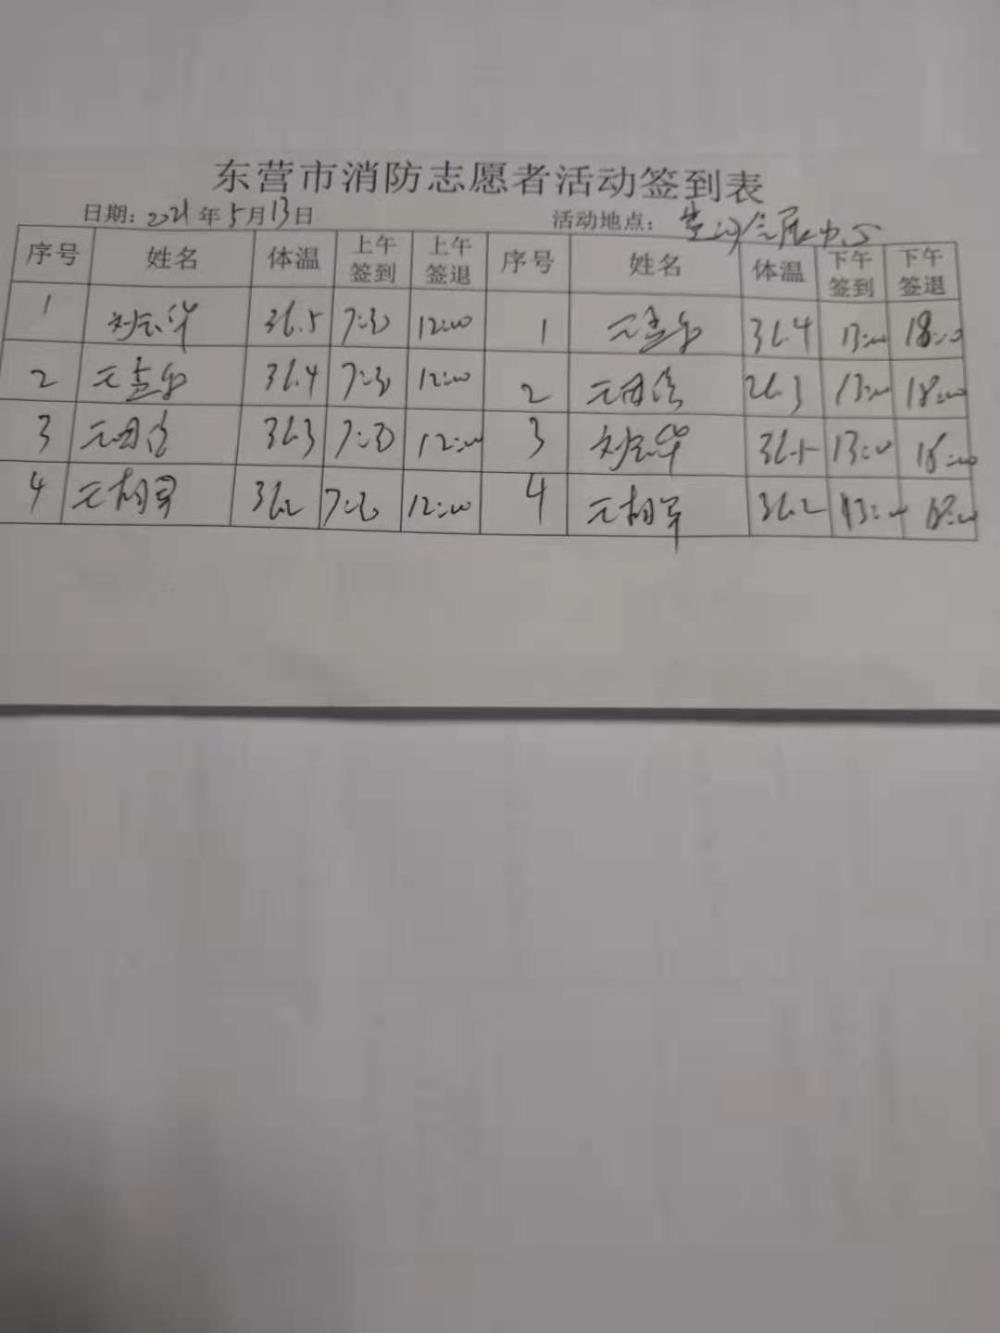 东营市消防志愿者活动签到表
日期: 2021年5月13日 活动地点: 黄河会展中心
序号 姓名 体温 上午签到 上午签退 序号 姓名 体温 下午签到 下午签退
1 刘志华 36.5 7:30 12:00 1 元 36.4 13:00 18:00
2 元 36.4 7:30 12:00 2 元 13:00 18:00
3 元 36.3 7:30 12:00 3 刘志华 36.5 13:00 18:00
4 元相军 36.2 7:30 12:00 4 元相军 36.2 13:00 18:00